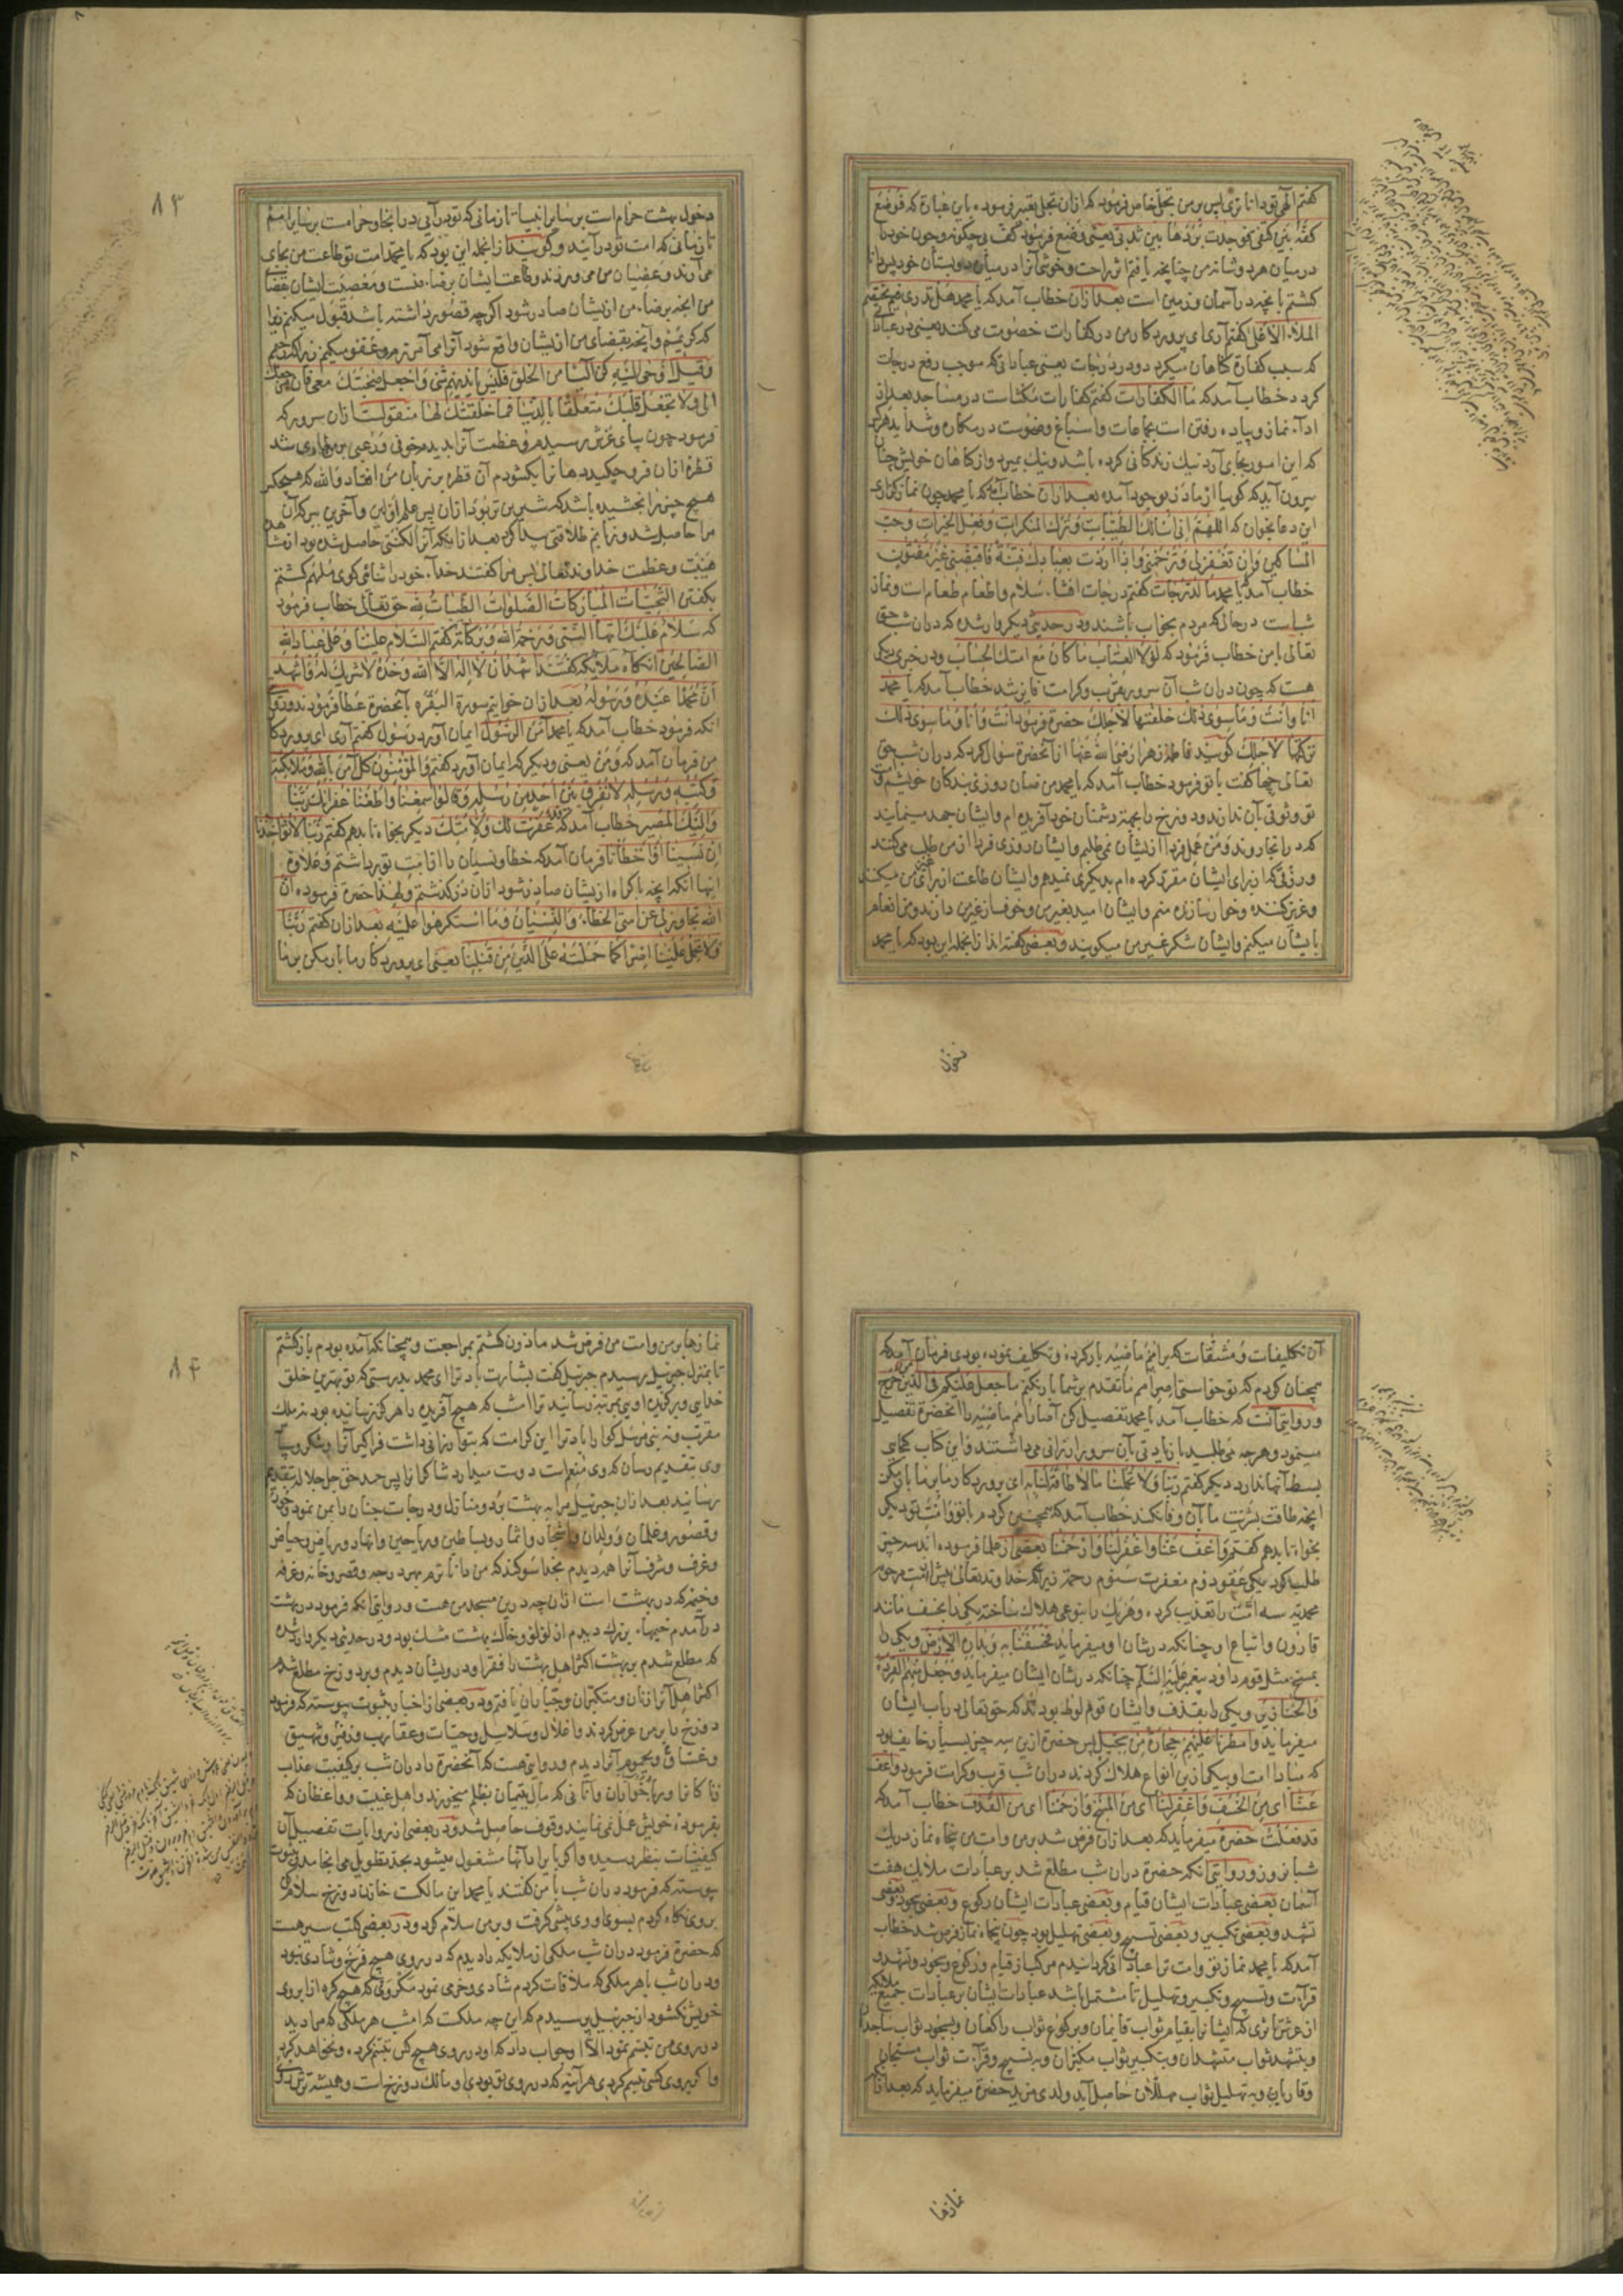 کفتم الهی تو داناتری پس بر من تجلی خاص فرمود که ازان تجلی تعبیر فرموده باین عبارة که فوضع
کفه بین کتفی فوجدت بردها بین ثدیی یعنی وضع فرمود کف بی چکونه و چون خود را
در میان هر دو شانه من چنانچه یافتم اثر راحت و خوشی آنرا در میان دو پستان خود پس دانا
کشتم بانچه در آسمان و زمین است بعد ازان خطاب آمد که یا محمد هل تدری فیم یختصم
الملأ الاعلی کفتم آری ای پروردکار من در کفارات خصومت می کنند یعنی در عباداتی
که سبب کفارة کناهان میکردد و در درجات یعنی عباداتی که موجب رفع درجات
کردد خطاب آمد که ما الکفارات کفتم کفارات مکث است در مساجد بعد از
ادآء نماز و پیاده رفتن است بجماعات و اسباغ وضوست در مکاره و شداید هر کس
که این امور بجای آرد نیک زندکانی کرده باشد و نیک بمیرد و از کناهان خویش چنان
بیرون آید که کویا از مادر نو بوجود آمده بعد ازان خطاب آمد که یا محمد چون نماز کزاری
این دعا بخوان که اللهم انی اسئلک الطیبات و ترک المنکرات و فعل الخیرات و حب
المساکین و ان تغفر لی و ترحمنی و اذا اردت بعبادک فتنة فاقبضنی غیر مفتون
خطاب آمد یا محمد ما الدرجات کفتم درجات افشاء سلام و اطعام طعام است و نماز
شب است در حالی که مردم بخواب باشند و در حدیثی دیکر وارد شده که دران شب حق
تعالی بامن خطاب فرمود که لولا العتاب ما کان مع امتک الحساب و در خبری دیکر
هست که چون دران شب آن سرور بقرب و کرامت فایز شد خطاب آمد که یا محمد
انا و انت و ما سوی ذلک خلقتها لاجلک حضرة فرمود انت و انا و ما سوی ذلک
ترکتها لاجلک کویند فاطمه زهرا رضی الله عنها از آنحضرة سؤال کرد که دران شب حق
تعالی چها کفت با تو فرمود خطاب آمد که یا محمد من ضامن روزی بندکان خویشم و
تو وثوق بآن ندارند و دوزخ را بجهة دشمنان خود آفریده ام و ایشان جهد مینمایند
که در انجا روند و من عمل فردا از ایشان نمی طلبم و ایشان روزی فردا از من طلب می کنند
و رزقی که از برای ایشان مقرر کرده ام بدیکری نمیدهم و ایشان طاعت از برای غیر من میکنند
و عزیز کننده و خوار سازنده منم و ایشان امید بغیر من و خوف از غیر من دارند و من انعام
بایشان میکنم و ایشان شکر غیر من میکویند و بعضی کفته اند ازانجمله این بود که یا محمد
دخول
۸۳
دخول بهشت حرام است بر سایر انبیا تا زمانی که تو درآیی در انجا و حرامست بر سایر امم
تا زمانی که امت تو درآیند و کویند ازانجمله این بود که یا محمد امت تو طاعت من بجای
می آرند و عصیان من می ورزند و طاعت ایشان برضاء منست و معصیت ایشان بقضاء
من انچه برضاء من از ایشان صادر شود اکر چه قصور داشته باشد قبول میکنم زیرا
که کریمم و آنچه بقضای من از ایشان واقع شود آنرا می آمرزم و عفو میکنم زیرا که رحیم
و قیل اوحی الیه کن آیسا من الخلق فلیس بایدیهم شیء و اجعل صحبتک معی فان مرجعک
الی و لا تجعل قلبک متعلقا بالدنیا فما خلقتک لها منقولست ازان سرور که
فرمود چون بپای عرش رسیدم و عظمت آنرا بدیدم خوفی و رعبی بر من طاری شد
قطرهٔ ازان فرو چکید دهان را بکشودم آن قطره بر زبان من افتاد والله که هیچکس
هیچ چیز را نچشیده باشد که شیرین تر بود ازان پس علم اولین و آخرین ببرکة آن
مرا حاصل شد و زبانم طلاقتی پیدا کرد بعد ازانکه آنرا لکنتی حاصل شده بود از مشاهدهٔ
هیبت و عظمت خداوند تعالی پس مرا کفتند خدآء خود را ثنا کوی ملهم کشتم
بکفتن التحیات المبارکات الصلوات الطیبات لله حق تعالی خطاب فرمود
که سلام علیک ایها النبی و رحمة الله و برکاته کفتم السلام علینا و علی عباد الله
الصالحین آنکاه ملایکه کفتند اشهد ان لا اله الا الله وحده لا شریک له و اشهد
ان محمدا عبده و رسوله بعد ازان خواتیم سورة البقره بآنحضرة عطا فرمودند و در
انکه فرمود خطاب آمد که یا محمد آمن الرسول ایمان آورد رسول کفتم آری ای پروردکار
من فرمان آمد که و من یعنی و دیکر که ایمان آورد کفتم و المؤمنون کل آمن بالله و ملائکته
و کتبه و رسله لا نفرق بین احد من رسله و قالوا سمعنا و اطعنا غفرانک ربنا
و الیک المصیر خطاب آمد که قد غفرت لک و لامتک دیکر بخواه تا بدهم کفتم ربنا لا تؤاخذنا
ان نسینا او اخطأنا فرمان آمد که خطا و نسیان را از امت تو برداشتم و علاوهٔ
اینها انکه انچه باکراه از ایشان صادر شود ازان درکذشتم و لهذا حضرة فرموده ان
الله تجاوز لی عن امتی الخطاء و النسیان و ما استکرهوا علیه بعد ازان کفتم ربنا
و لا تحمل علینا اصرا کما حملته علی الذین من قبلنا یعنی ای پروردکار ما بار مکن بر ما
آن تکلیفات و مشقات که بر امم ماضیه بار کردهٔ و تکلیف نموده بودی فرمان آمد که
همچنان کردم که تو خواستی اصر امم ما تقدم بر شما بار نکنم ما جعل علیکم فی الدین من حرج
و روایتی آنست که خطاب آمد یا محمد تفصیل کن آصار امم ماضیه را آنحضرة تفصیل
مینمود و هر چه می طلبید با زیادتی بآن سرور ارزانی می داشتند و این کتاب کنجای
بسط آنها ندارد دیکر کفتم ربنا و لا تحملنا ما لا طاقة لنا به ای پروردکار ما بر ما بار مکن
انچه طاقت بشریت ما آن وفا نکند خطاب آمد که همچنین کردم با تو و امت تو دیکر
بخواه تا بدهم کفتم و اعف عنا و اغفر لنا و ارحمنا بعضی از علما فرموده اند سه چیز
طلب کرد یکی عفو دوم مغفرت سئوم رحمة زیرا که خداوند تعالی پیش از امت مرحومه
محمدیه سه امت را تعذیب کرده و هر یک را بنوعی هلاک ساخته یکی را بخسف مانند
قارون و اتباع او چنانکه در شان او میفرماید فخسفنا به و بداره الارض و یکی را
بمسخ مثل قوم داود پیغمبر علیه السلم چنانکه در شان ایشان میفرماید و جعل منهم القردة
و الخنازیر و یکی را بقذف و ایشان قوم لوط بودند که حق تعالی در باب ایشان
میفرماید و امطرنا علیهم حجارة من سجیل پس حضرة ازین سه چیز بسیار خایف بود
که مبادا امت او بیکی ازین انواع هلاک کردند دران شب قرب و کرامت فرمود و اعف
عنا ای من الخسف و اغفر لنا ای من المسخ و ارحمنا ای من القذف خطاب آمد که
قد فعلت حضرة میفرماید که بعد ازان فرض شد بر من و امت من پنجاه نماز در یک
شبانروز و روایتی انکه حضرة دران شب مطلع شد بر عبادات ملایک هفت
آسمان بعضی عبادات ایشان قیام و بعضی عبادات ایشان رکوع و بعضی سجود و بعضی
تشهد و بعضی تکبیر و بعضی تسبیح و بعضی تهلیل بود چون پنجاه نماز فرض شد خطاب
آمد که یا محمد نماز تو و امت ترا عباداتی کردانیدم مرکب از قیام و رکوع و سجود و تشهد و
قرآءت و تسبیح و تکبیر و تهلیل تا مشتمل باشد عبادات ایشان بر عبادات جمیع ملایکه
از عرش تا ثری که ایشان را بقیام ثواب قایمان و برکوع ثواب راکعان و بسجود ثواب ساجدان
و بتشهد ثواب متشهدان و بتکبیر ثواب مکبران و به تسبیح و قرآءت ثواب مسبحان
و قاریان و به تهلیل ثواب مهللان حاصل آید ولدی مزید حضرة میفرماید که بعد ازانکه
نمازها
۸۴
نمازها بر من و امت من فرض شد ماذون کشتم بمراجعت و همچنانکه آمده بودم بازکشتم
تا بمنزل جبرئیل رسیدم جبرئیل کفت بشارت باد ترا ای محمد بدرستی که تو بهترین خلق
خدایی و برکزیدهٔ اویی بمرتبهٔ رسانید ترا امشب که هیچ آفریده را هرکز نرسانیده بود نه ملک
مقرب و نه نبی مرسل کوارا باد ترا این کرامت که بتو ارزانی داشت فراکیر آنرا و شکر و سپاس
وی بتقدیم رسان که وی منعم است دوست میدارد شاکران را پس حمد حق جل جلاله بتقدیم
رسانید بعد ازان جبرئیل مرا به بهشت برد و منازل و درجات جنان را بمن نمود و حور
و قصور و غلمان و ولدان و اشجار و اثمار و بساطین و ریاحین و انهار و ریاض و حیاض
و غرف و شرف آنرا همه دیدم بخدا سوکند که من داناترم بهر درجه و قصر و خانه و غرفه
و خیمه که در بهشت است ازان چه درین مسجد من هست و روایتی انکه فرمود در بهشت
درآمدم خیمهاء بزرک دیدم از لؤلؤ و خاک بهشت مشک بود و در حدیثی دیکر وارد شده
که مطلع شدم بر بهشت اکثر اهل بهشت را فقرا و درویشان دیدم و بر دوزخ مطلع شدم
اکثر اهل آنرا زنان و متکبران و جباران یافتم و در بعضی از اخبار بثبوت پیوسته که فرمود
دوزخ را بر من عرض کردند و اغلال و سلاسل و حیات و عقارب و زفیر و شهیق
و غساق و یحموم آنرا دیدم و روایتی هست که آنحضرة را دران شب بر کیفیت عذاب
زناکاران و رباخواران و آنانی که مال یتیمان بظلم میخورند و اهل غیبت و واعظان که
بفرمودهٔ خویش عمل نمی نمایند وقوف حاصل شد و در بعضی از روایات تفصیل آن
کیفیات بنظر رسیده و اکر بایراد آنها مشغول میشود بحد تطویل می انجامد و بثبوت
پیوسته که فرمود دران شب با من کفتند یا محمد این مالکست خازن دوزخ سلام کن
بر وی نکاه کردم بسوی او وی پیشی کرفت و بر من سلام کرد و در بعضی کتب سیر هست
که حضرة فرمود دران شب ملکی از ملایکه را دیدم که در روی هیچ فرخ و شادی نبود
و دران شب با هر ملکی که ملاقات کردم شادی و خرمی نمود مکر وی که هیچ کره از ابروی
خویش نکشود از جبرئیل پرسیدم که این چه ملکست که امشب هر ملکی که مرا دید
در روی من تبسم نمود الا او جواب داد که او در روی هیچ کس تبسم نکرده و نخواهد کرد
و اکر بروی کسی تبسم کردی هر آینه که در روی تو بودی او مالک دوزخ است و همیشه ترش